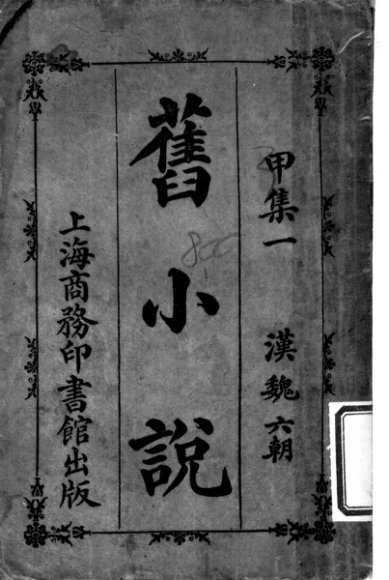 甲集一 漢魏六朝
舊小說
上海商務印書館出版